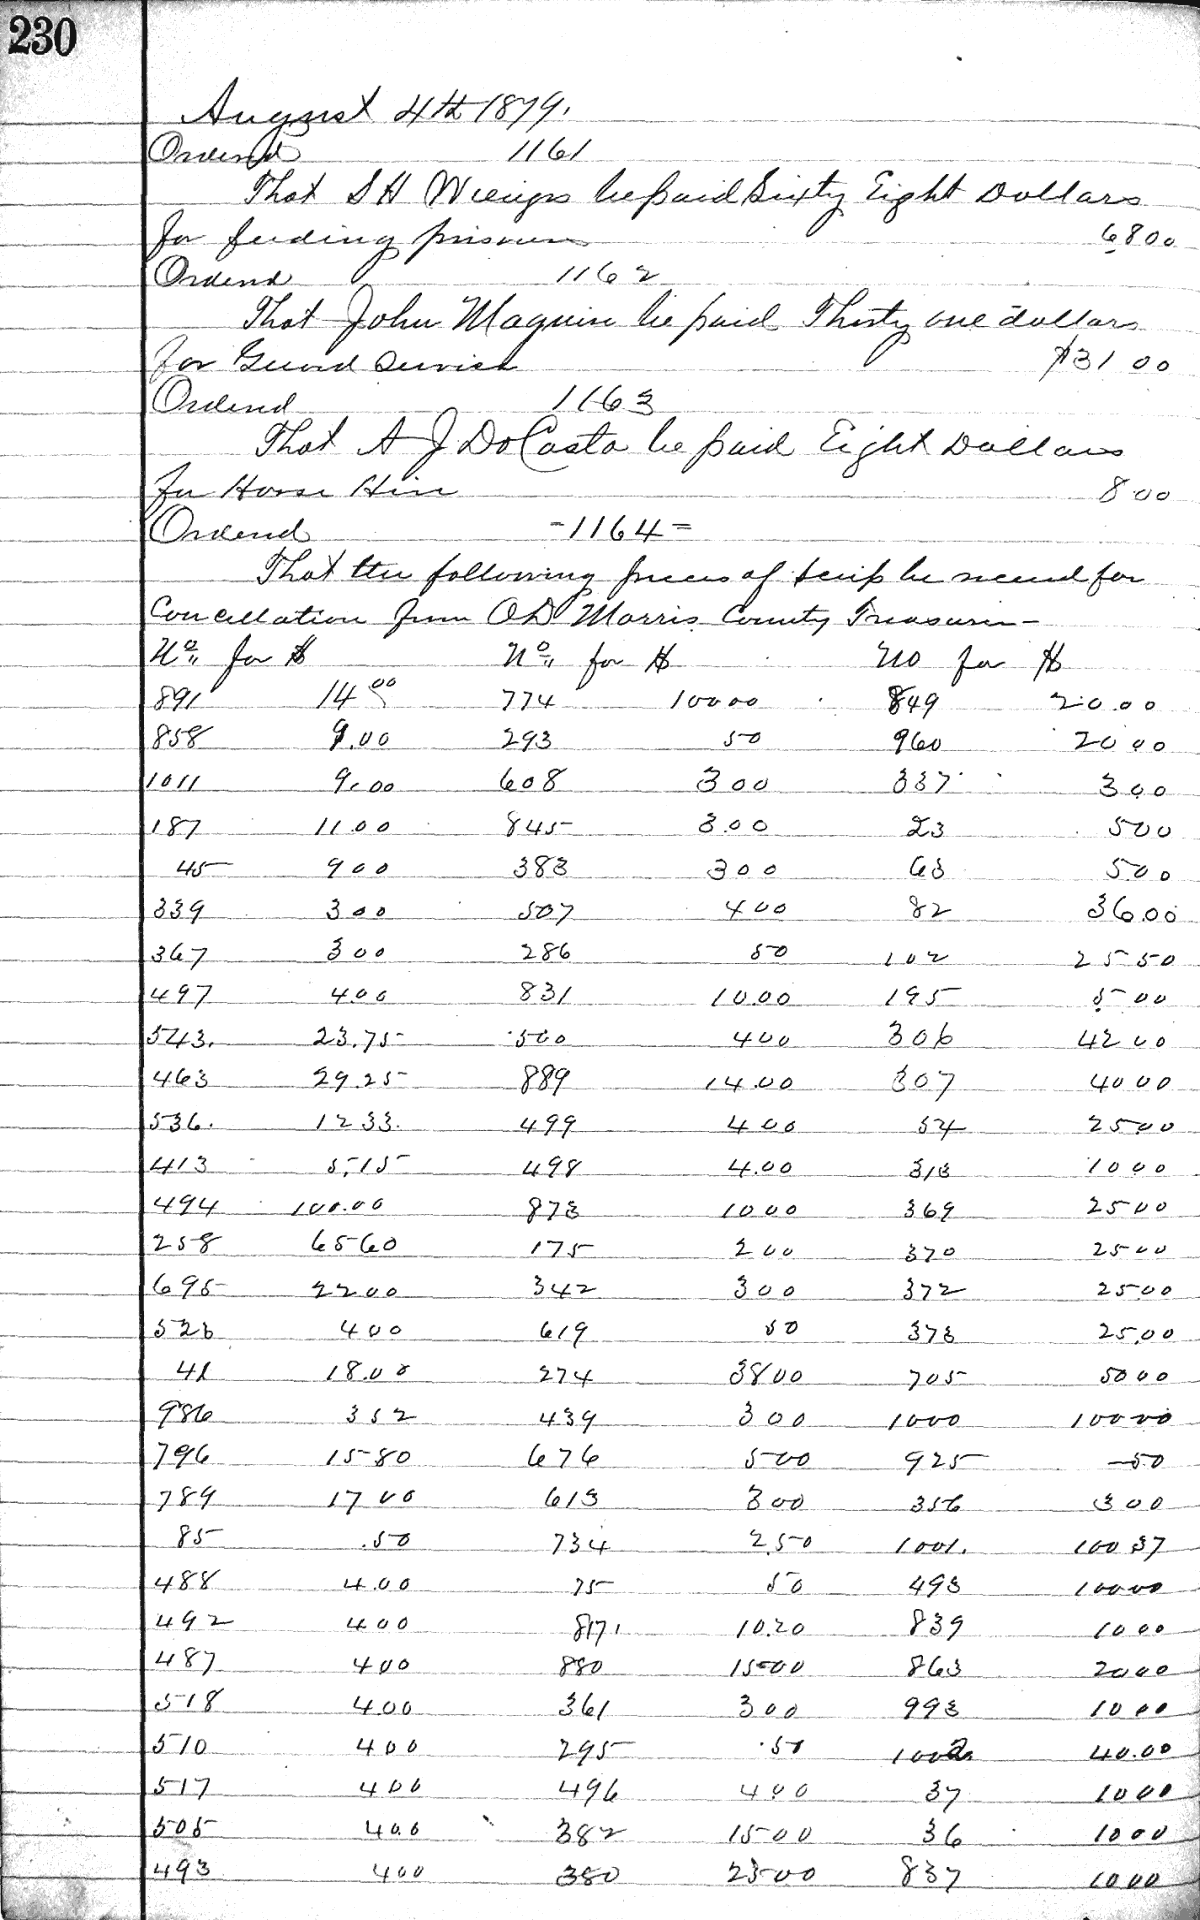 230
August 4th 1879.
Ordend 1161
That S H be paid Sixty Eight Dollars
for feeding prisoners 6800
Ordend 1162
That John Maguire be paid Thirty one dollars
for Guard Service $31 00
Ordend 1163
That A J DaCosta be paid Eight Dollars
for Horse Hire 800
Ordend -1164=
That the following pieces of scrip be received for
Concellation from O D Morris County Treasurer-
No,, for $ No,, for $ No for $
891 14 00 774 100 00 849 20.00
858 9.00 293 50 960 20 00
1011 9.00 608 3 00 337 3 00
187 11.00 845 3.00 23 5 00
45 9 00 383 3 00 63 5 00
339 3 00 507 4 00 82 36.00
367 3 00 286 50 102 25 50
497 4.00 831 10.00 195 5 00
543. 23.75 500 4 00 306 42 00
463 29.25 889 14.00 307 40 00
536. 12 33. 499 4 00 54 25 00
413 5,15 498 4.00 313 10 00
494 100.00 873 10 00 369 25 00
258 65 60 175 2 00 370 25 00
695 22 00 342 3 00 372 25 00
526 4 00 619 50 373 25,00
41 18.00 274 38 00 705 50 00
986 3 52 439 3 00 1000 100 00
796 15 80 676 5 00 925 50
789 17 00 613 3 00 356 3 00
85 .50 734 2,50 1001. 100 37
488 4.00 75 50 493 100 00
492 4 00 817, 10.20 839 10 00
487 4 00 880 15 00 863 20 00
518 4.00 361 3 00 993 10 00
510 4 00 295 .50 1002 40.00
517 4 00 496 4 00 37 10 00
505 4 00 382 15 00 36 10 00
493 4 00 380 25 00 837 10 00